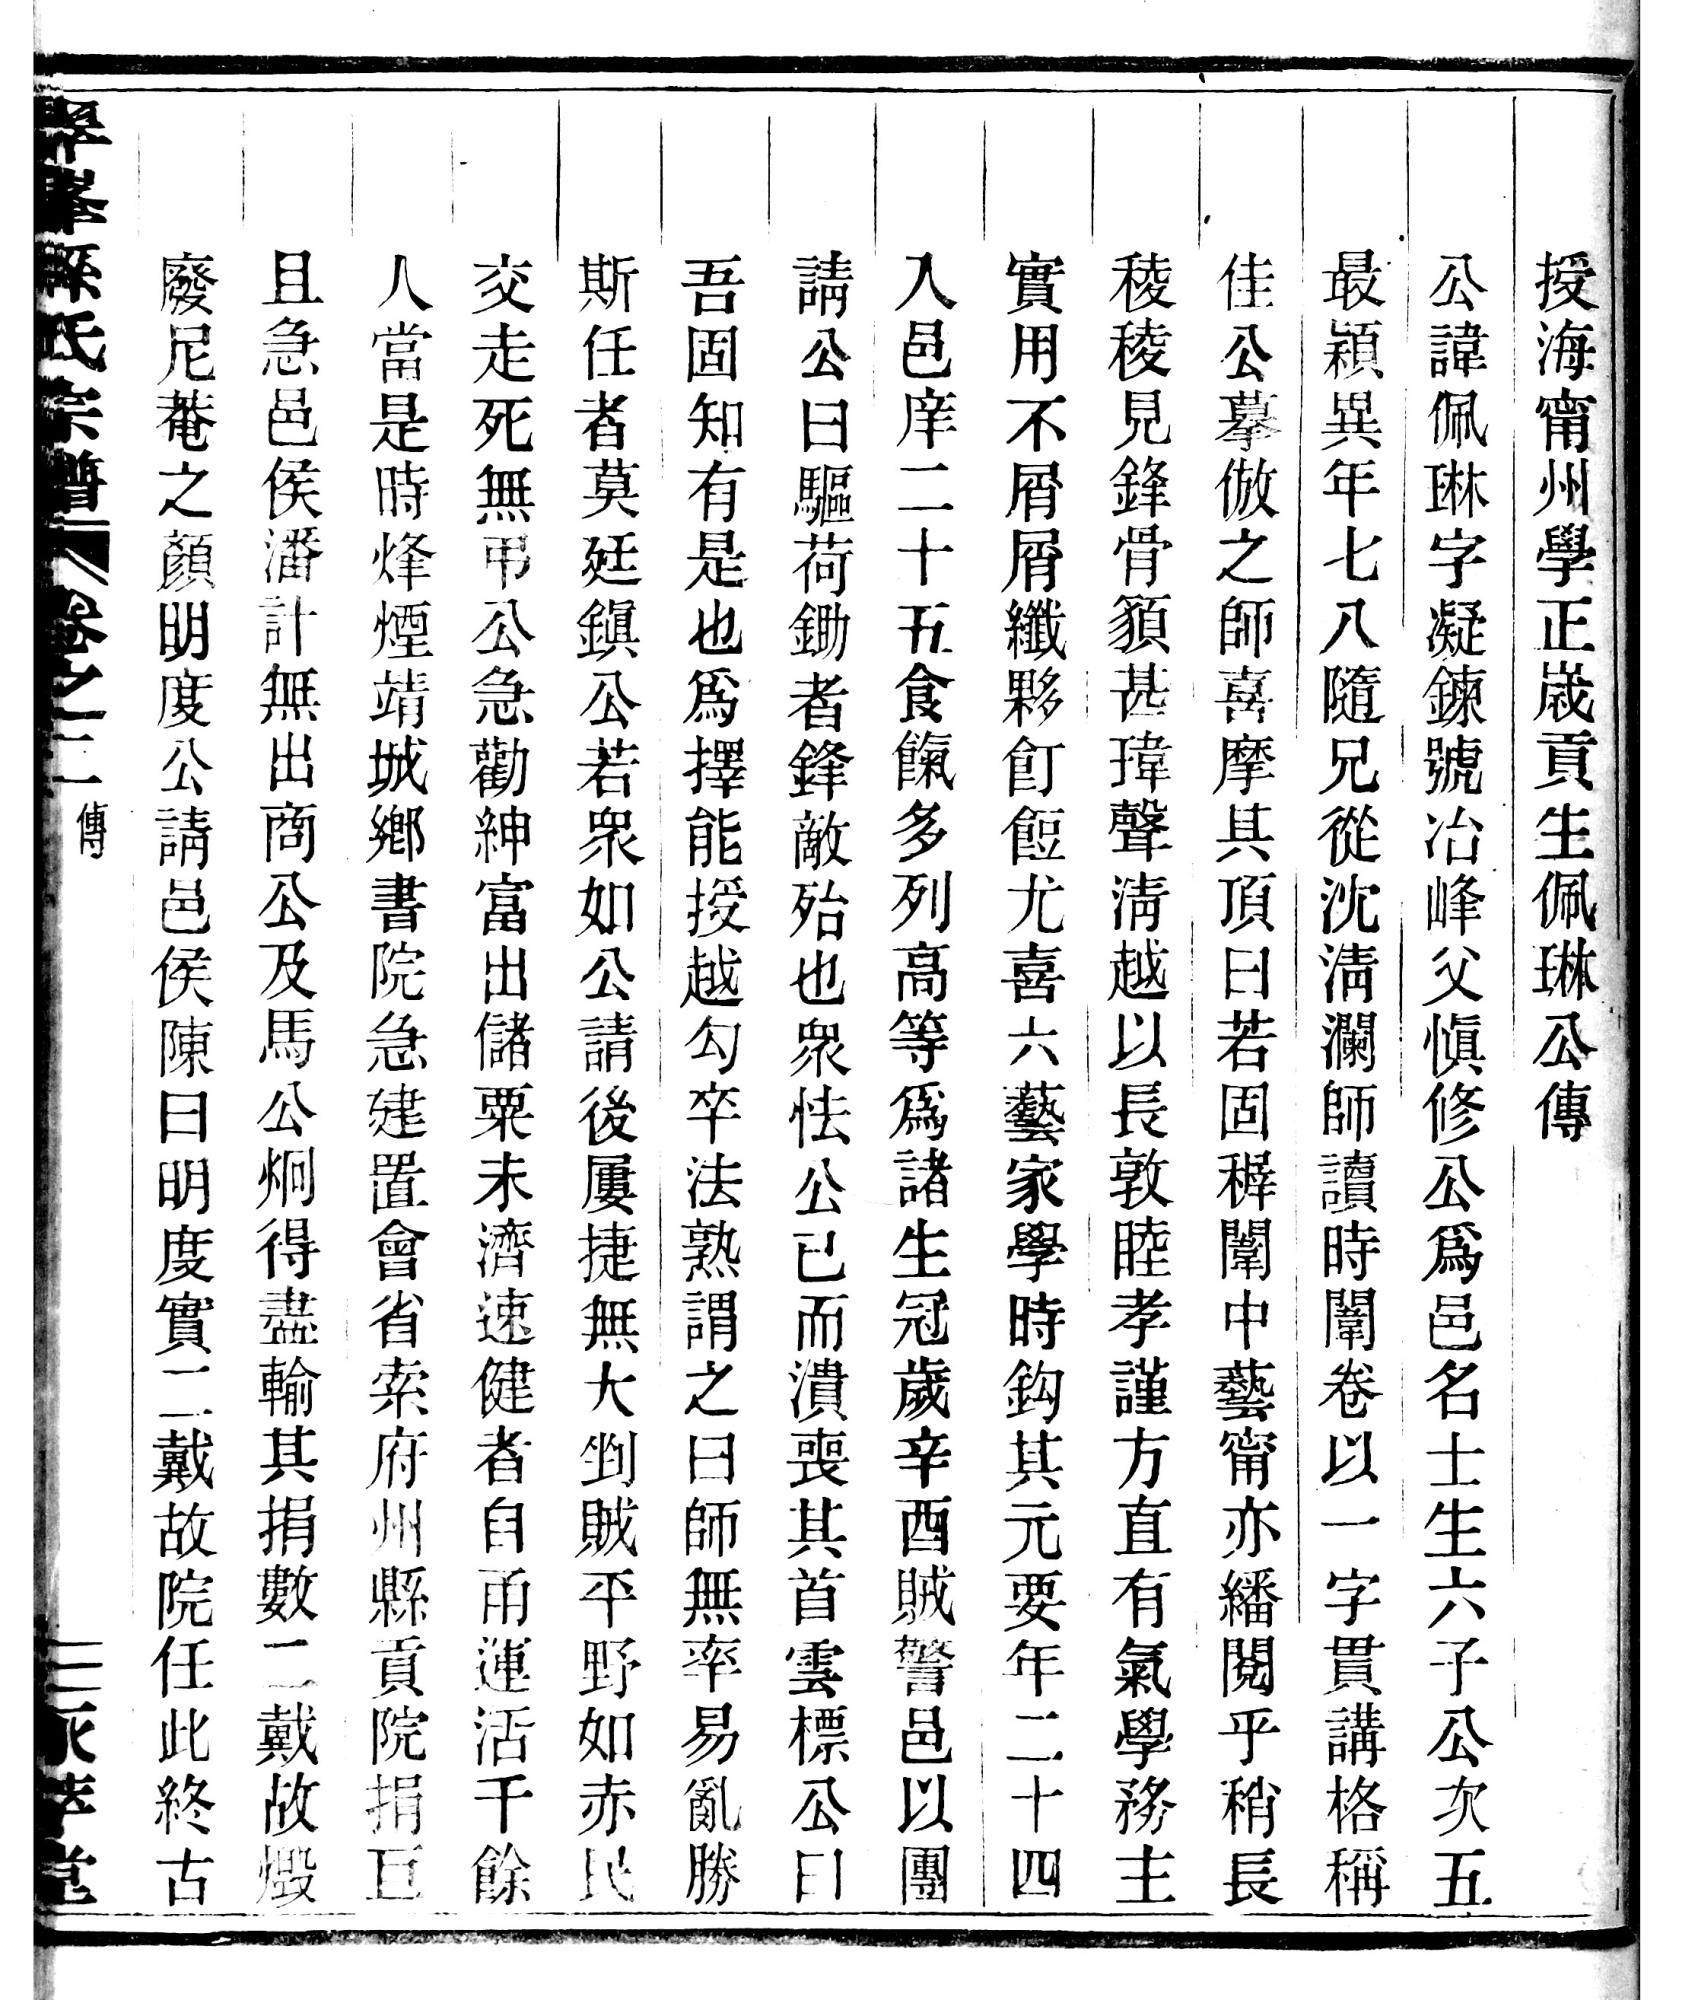 授海甯州學正歲貢生佩琳公傳
公諱佩琳字凝鍊號冶峰父慎修公爲邑名士生六子公次五
最穎異年七八隨兄從沈淸瀾師讀時闈卷以一字貫講格稱
佳公摹倣之師喜摩其頂曰若固穉闈中藝甯亦繙閱乎稍長
稜稜見鋒骨額甚瑋聲淸越以長敦睦孝謹方直有氣學務主
實用不屑屑纖夥飣餖尤喜六藝家學時鈎其元要年二十四
入邑庠二十五食餼多列高等爲諸生冠歲辛酉賊警邑以團
請公曰驅荷鋤者鋒敵殆也衆怯公已而潰喪其首雲標公曰
吾固知有是也爲擇能授越勾卒法熟謂之曰師無率易亂勝
斯任者莫廷鎭公若衆如公請後屢捷無大剉賊平野如赤民
交走死無弔公急勸紳富出儲粟未濟速健者自甬運活千餘
人當是時烽煙靖城鄉書院急建置會省索府州縣貢院捐亘
且急邑侯潘計無出商公及馬公炯得盡輸其捐數二戴故燬
廢尼菴之顏明度公請邑侯陳曰明度實二戴故院任此終古
氏宗譜 卷之二 傳 堂